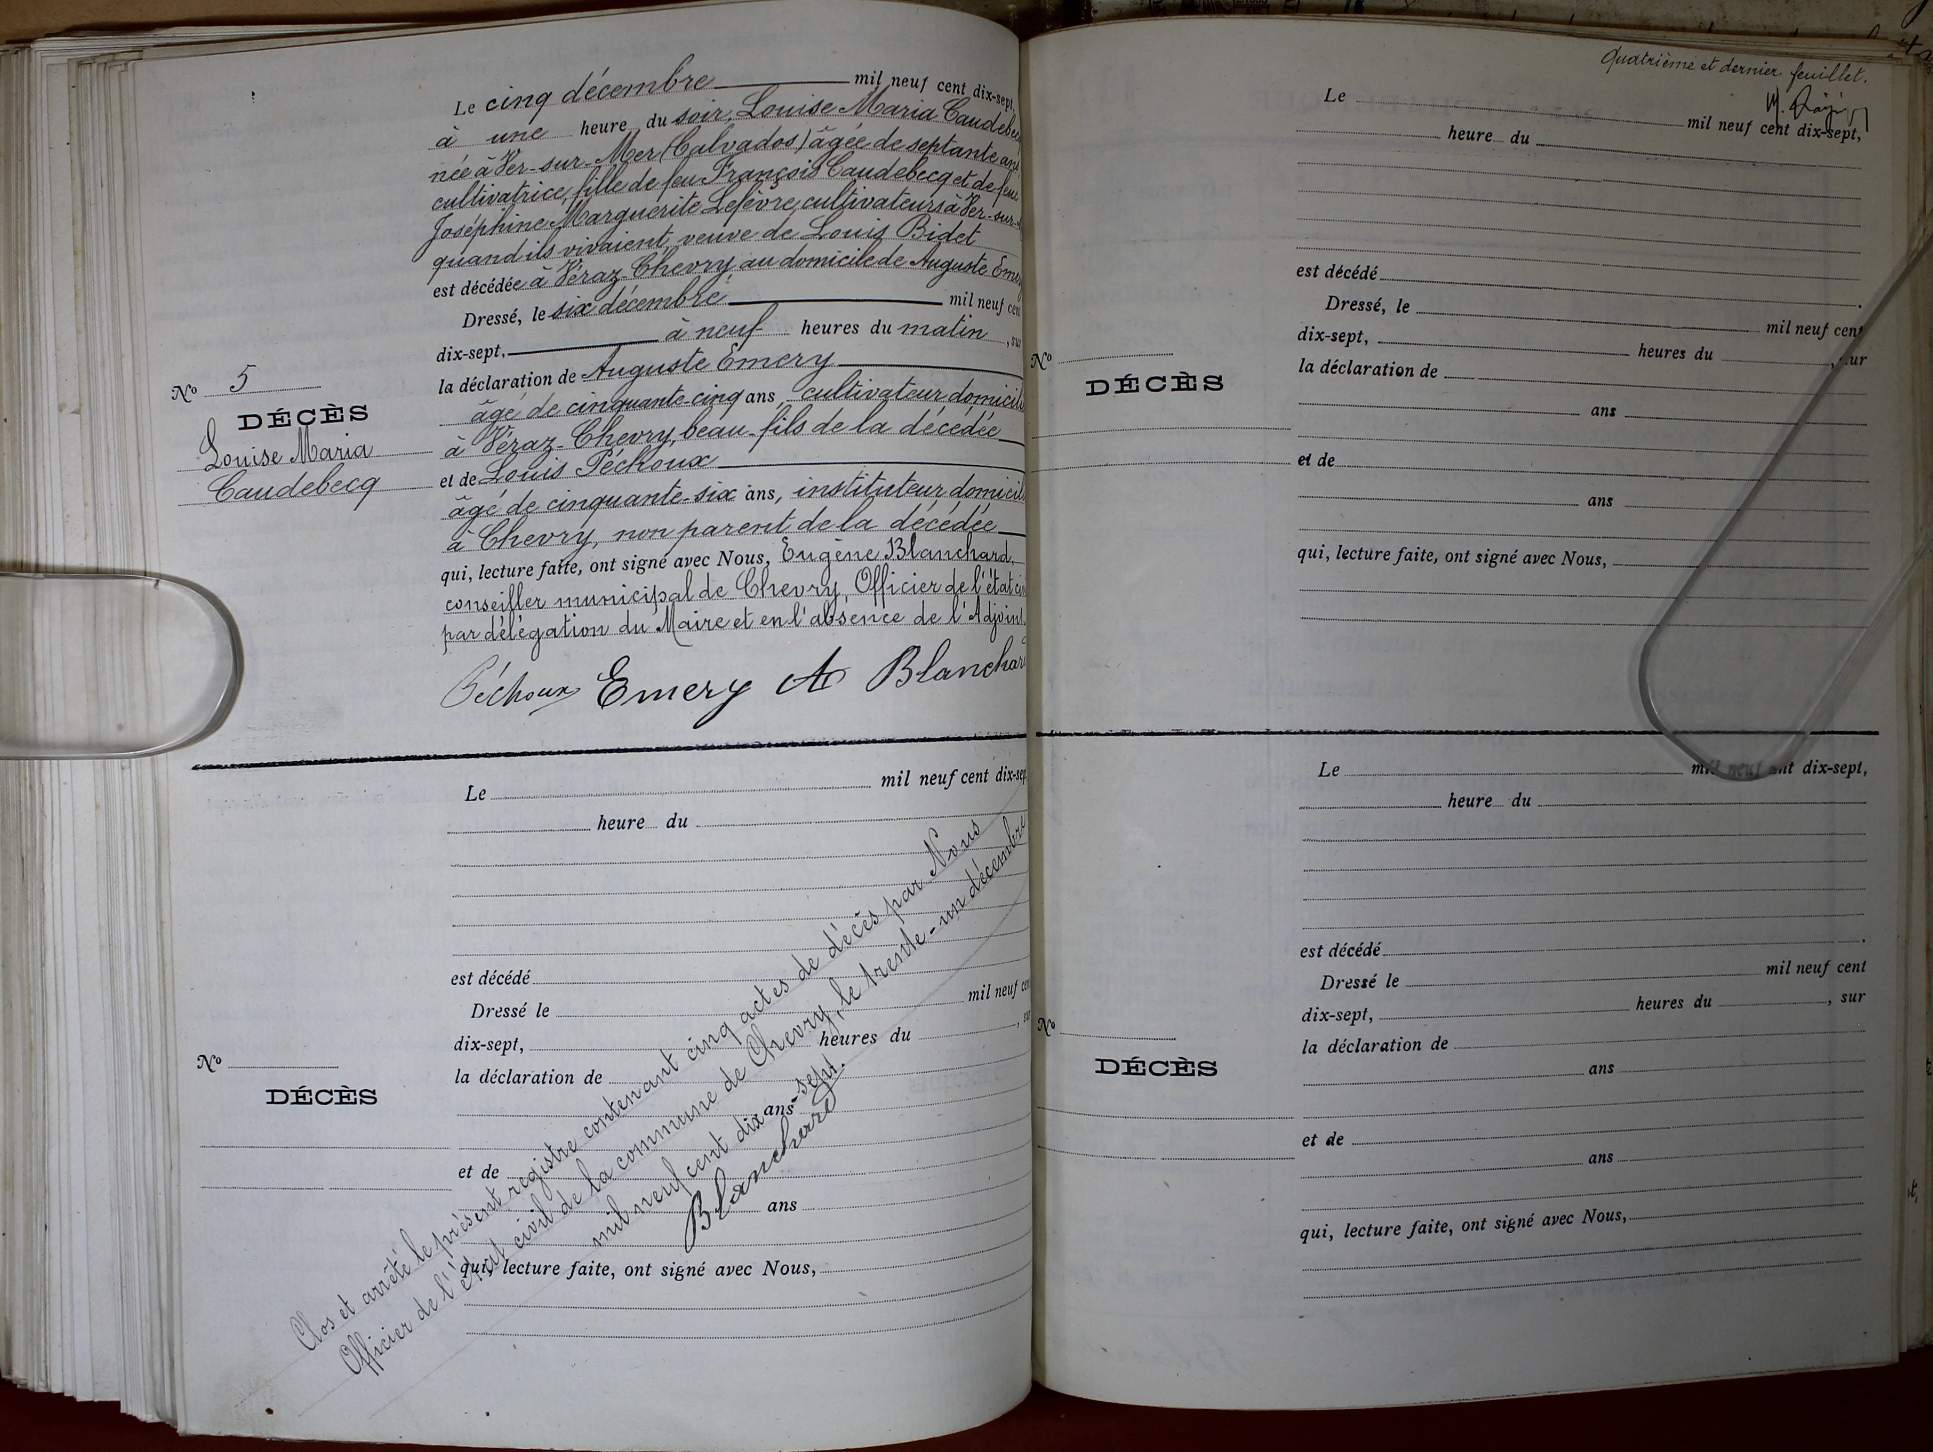 Le cinq décembre mil neuf cent dix-sept,
à une heure du soir, Louise Maria Caudebecq
née à Ver-sur-Mer (Calvados) âgée de septante ans
cultivatrice, fille de feu François Caudebecq et de feue
Joséphine Marguerite Lefèvre, cultivateurs à Ver-sur-
quand ils vivaient, veuve de Louis Bidet
est décédée à Véraz-Chevry, au domicile de Auguste Emery
Dressé, le six décembre mil neuf cent
dix-sept, à neuf heures du matin, sur
la déclaration de Auguste Emery
âgé de cinquante-cinq ans, cultivateur domicilié
à Véraz-Chevry, beau-fils de la décédée
et de Louis Péchoux
âgé de cinquante-six ans, instituteur domicilié
à Chevry, non parent de la décédée
qui, lecture faite, ont signé avec Nous, Eugène Blanchard,
conseiller municipal de Chevry, Officier de l'état civil
par délégation du Maire et en l'absence de l'Adjoint.
Péchoux Emery A Blanchard
No 5
DÉCÈS
Louise Maria
Caudebecq
Le mil neuf cent dix-sept
heure du
est décédé
Dressé le mil neuf cent
dix-sept, heures du , sur
la déclaration de
ans
et de
ans
qui, lecture faite, ont signé avec Nous,
No
DÉCÈS
Clos et arrêté le présent registre contenant cinq actes de décès par Nous
Officier de l'état civil de la commune de Chevry, le trente-un décembre
mil neuf cent dix-sept.
Blanchard
Quatrième et dernier feuillet.
Le mil neuf cent dix-sept,
heure du
est décédé
Dressé, le mil neuf cent
dix-sept, heures du , sur
la déclaration de
ans
et de
ans
qui, lecture faite, ont signé avec Nous,
No
DÉCÈS
Le mil neuf cent dix-sept,
heure du
est décédé
Dressé le mil neuf cent
dix-sept, heures du , sur
la déclaration de
ans
et de
ans
qui, lecture faite, ont signé avec Nous,
No
DÉCÈS